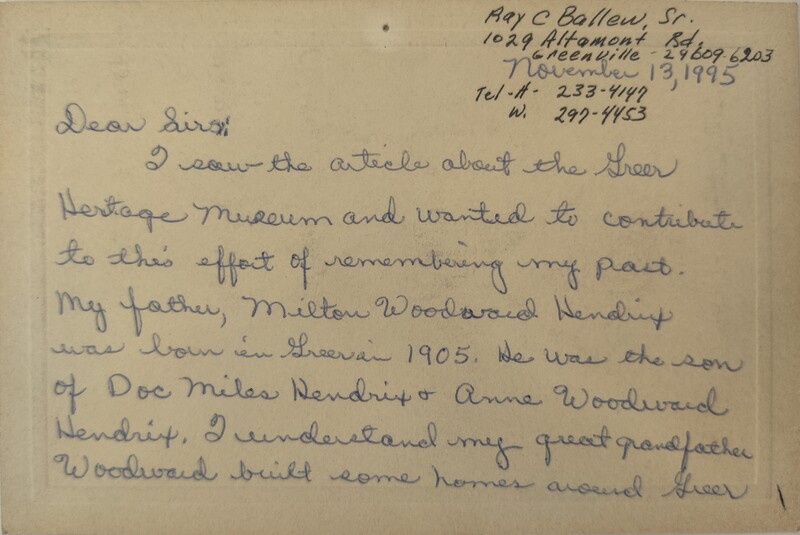 Ray C Ballew, Sr.
1029 Altamont Rd.
Greenville - 29609-6203
November 13, 1995
Tel-H- 233-4147
W. 297-4453
Dear Sirs:
I saw the article about the Greer
Hertage Museum and wanted to contribute
to this effort of remembering my past.
My father, Milton Woodward Hendrix
was born in Greer in 1905. He was the son
of Doc Miles Hendrix & Anne Woodward
Hendrix. I understand my great grandfather
Woodward built some homes around Greer